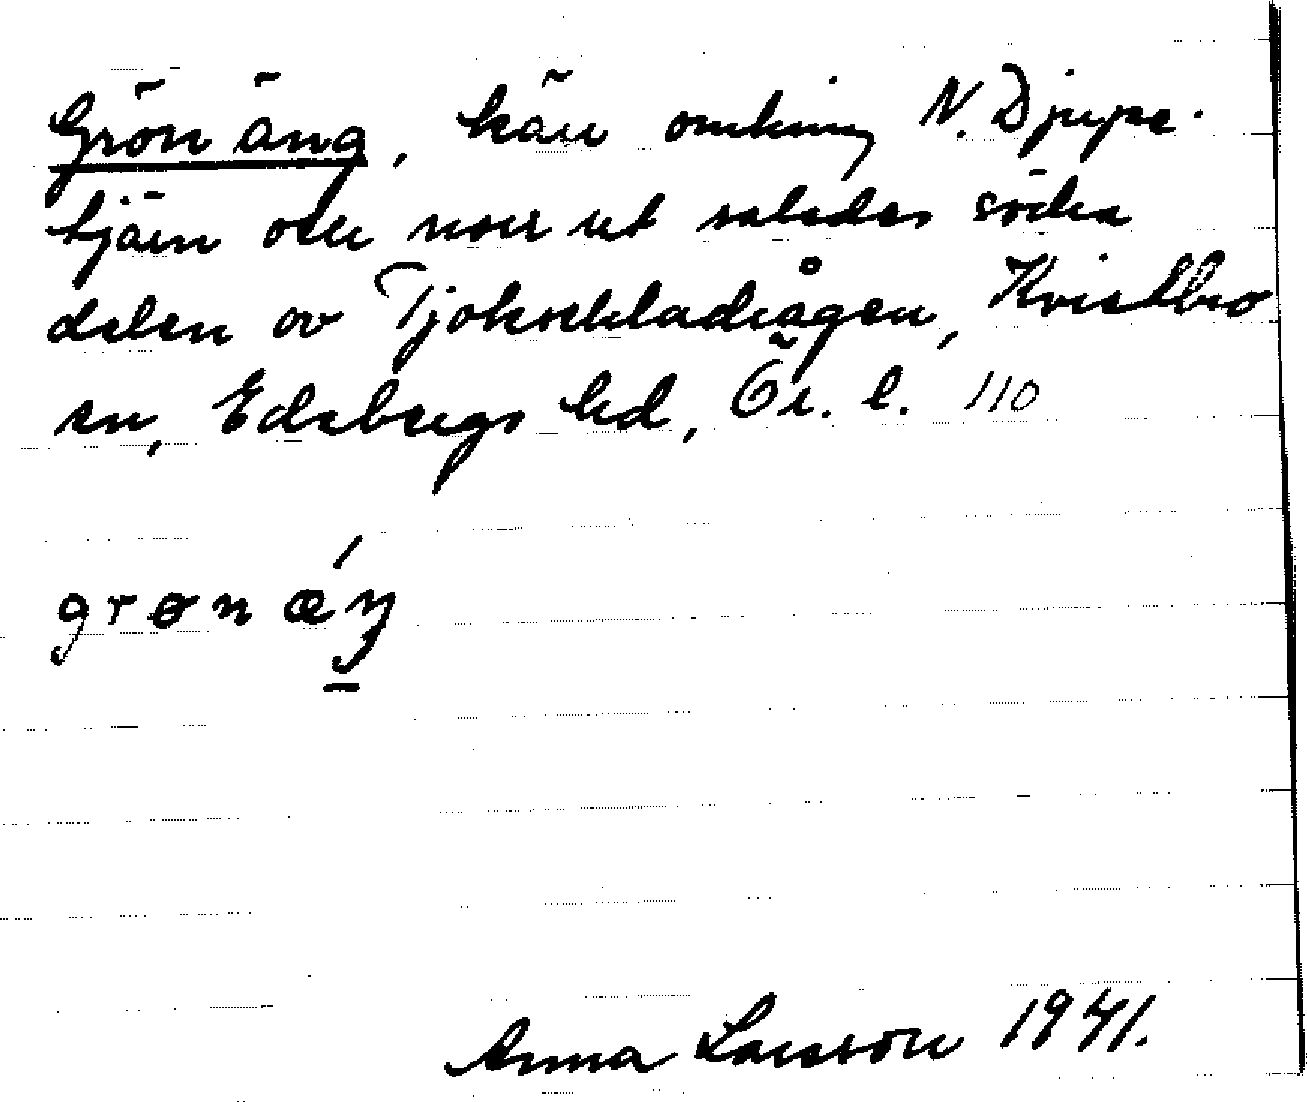 Grön äng, kärr omkring N. Djupe-
tjärn och norr ut saledes södra
delen av Tjokorkladrågen, Kvistbro
sn, Edsbergs hd, Ör. l. 110
grønæ´ŋ
Anna Larsson 1941.